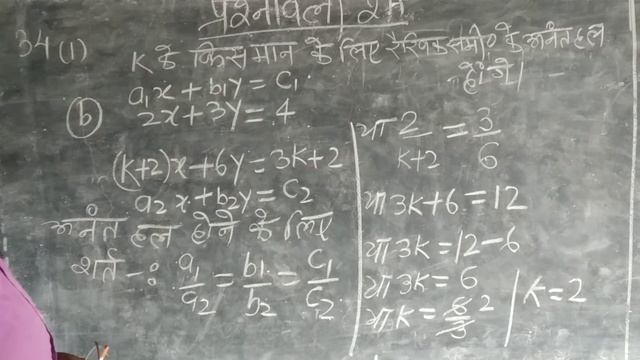 प्रश्नावली 2H
34(1) K के किस मान के लिए रैखिक समी० के अनंत हल होंगे।
a₁x + b₁y = c₁
(b) 2x + 3y = 4
(k+2)x + 6y = 3k+2
a₂x + b₂y = c₂
अनंत हल होने के लिए
शर्त -: a₁/a₂ = b₁/b₂ = c₁/c₂
या 2/k+2 = 3/6
या 3k+6 = 12
या 3k = 12-6
या 3k = 6
या k = 6/3 2 / k = 2